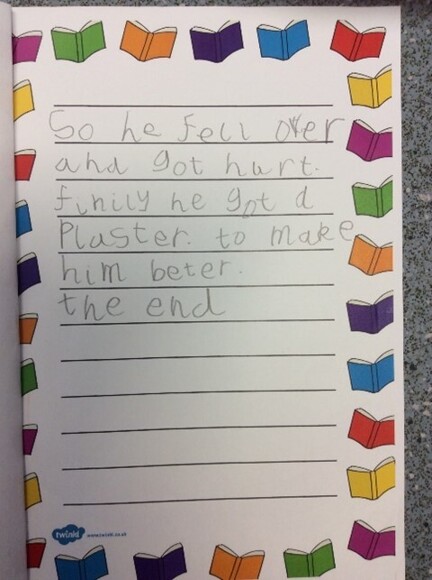 So he fell over
and got hurt.
finily he got a
Plaster. to make
him beter.
the end
twinkl www.twinkl.co.uk